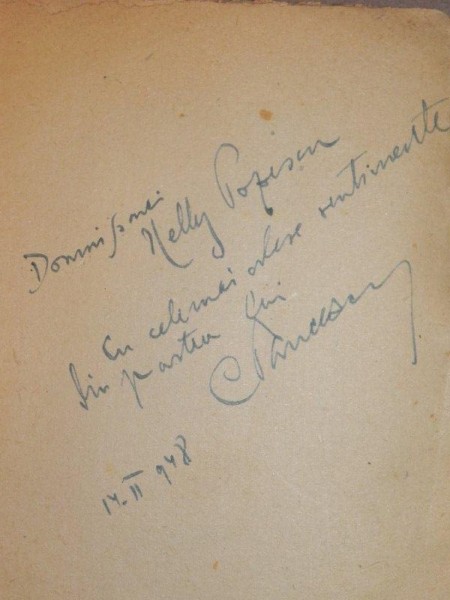 Domnișoarei
Nelly Popescu
Cu cele mai alese sentimente
din partea lui
14.II 948